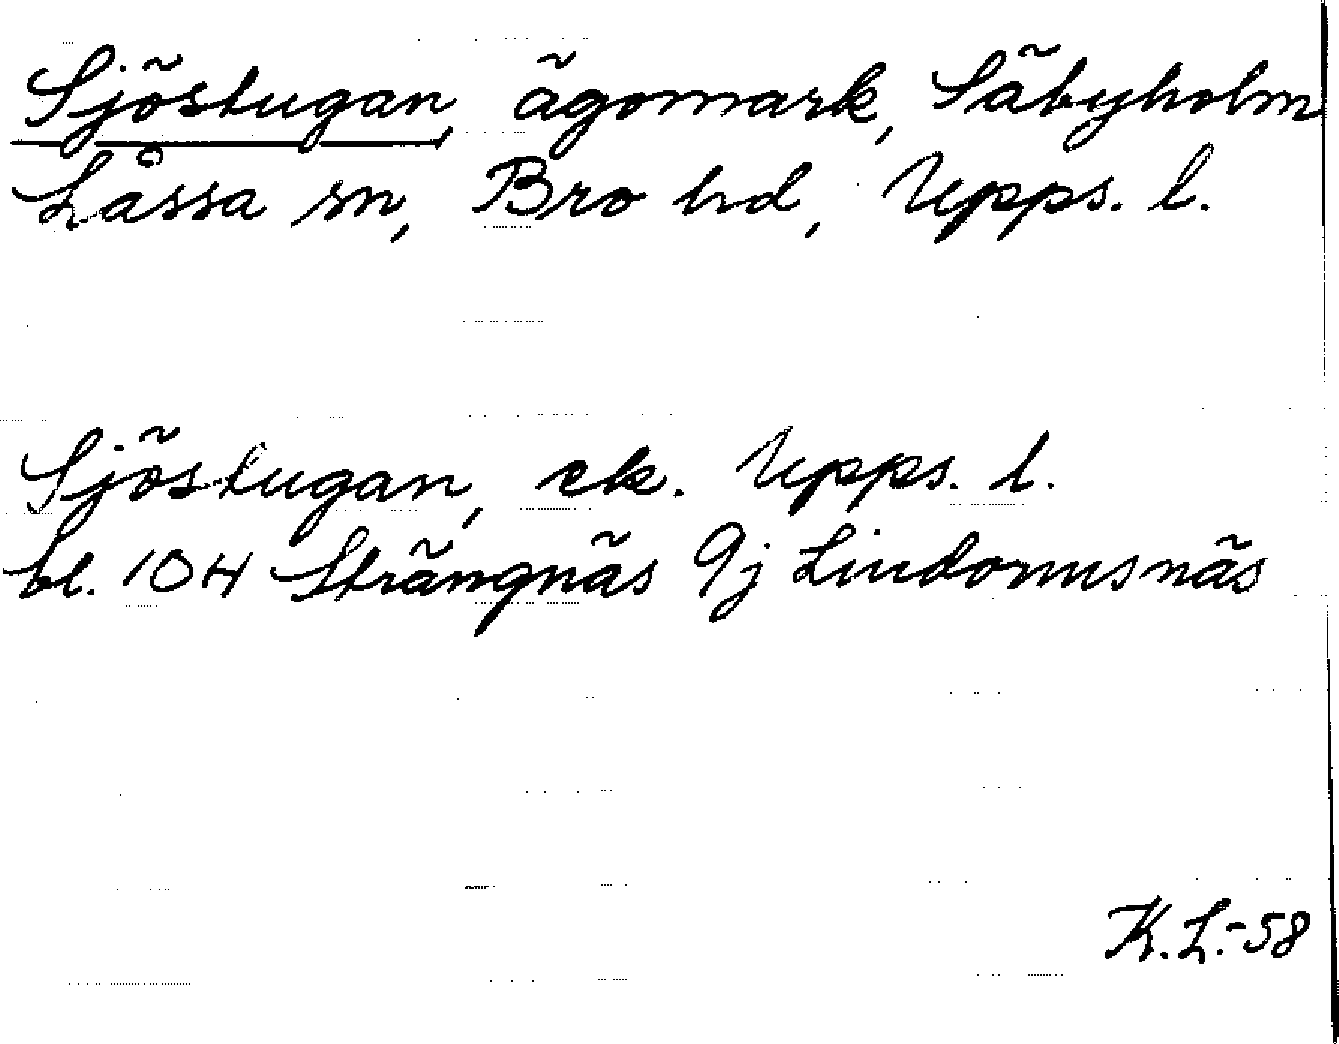 Sjöstugan, ägomark, Säbyholm
Låssa sn, Bro hd, Upps. l.
Sjöstugan, ek. Upps. l.
bl. 104 Strängnäs 9j Lindormsnäs
K.L.-58